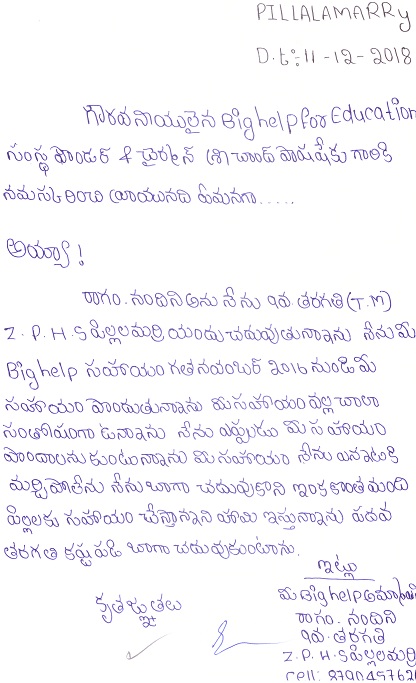 PILLALAMARRY
D.t:11-12-2018
గౌరవనీయులైన Big help for Education
సంస్థ ఫౌండర్ & ఛైర్మన్ శ్రీ చాంద్ పాషాకు గారికి
నమస్కరించి వ్రాయునది ఏమనగా.....
అయ్యా!
రాగం. నందిని అను నేను 10వ తరగతి (T.M)
Z.P.H.S పిల్లలమర్రి యందు చదువుతున్నాను నేను మీ
Big help సహాయం గత నవంబర్ 2016 నుండి మీ
సహాయం పొందుతున్నాను మీ సహాయం వల్ల చాలా
సంతోషంగా ఉన్నాను నేను ఎప్పుడు మీ సహాయం
పొందాలనుకుంటున్నాను మీ సహాయం నేను ఎన్నటికి
మర్చిపోలేను నేను బాగా చదువుకొని ఇంకకొంతమంది
పిల్లలకు సహాయం చేస్తానని హామి ఇస్తున్నాను పదవ
తరగతి కష్టపడి బాగా చదువుకుంటాను.
ఇట్లు
కృతజ్ఞతలు
మీ Big help అమ్మాయి
రాగం. నందిని
10వ తరగతి
Z.P.H.S పిల్లలమర్రి
cell: 879045762